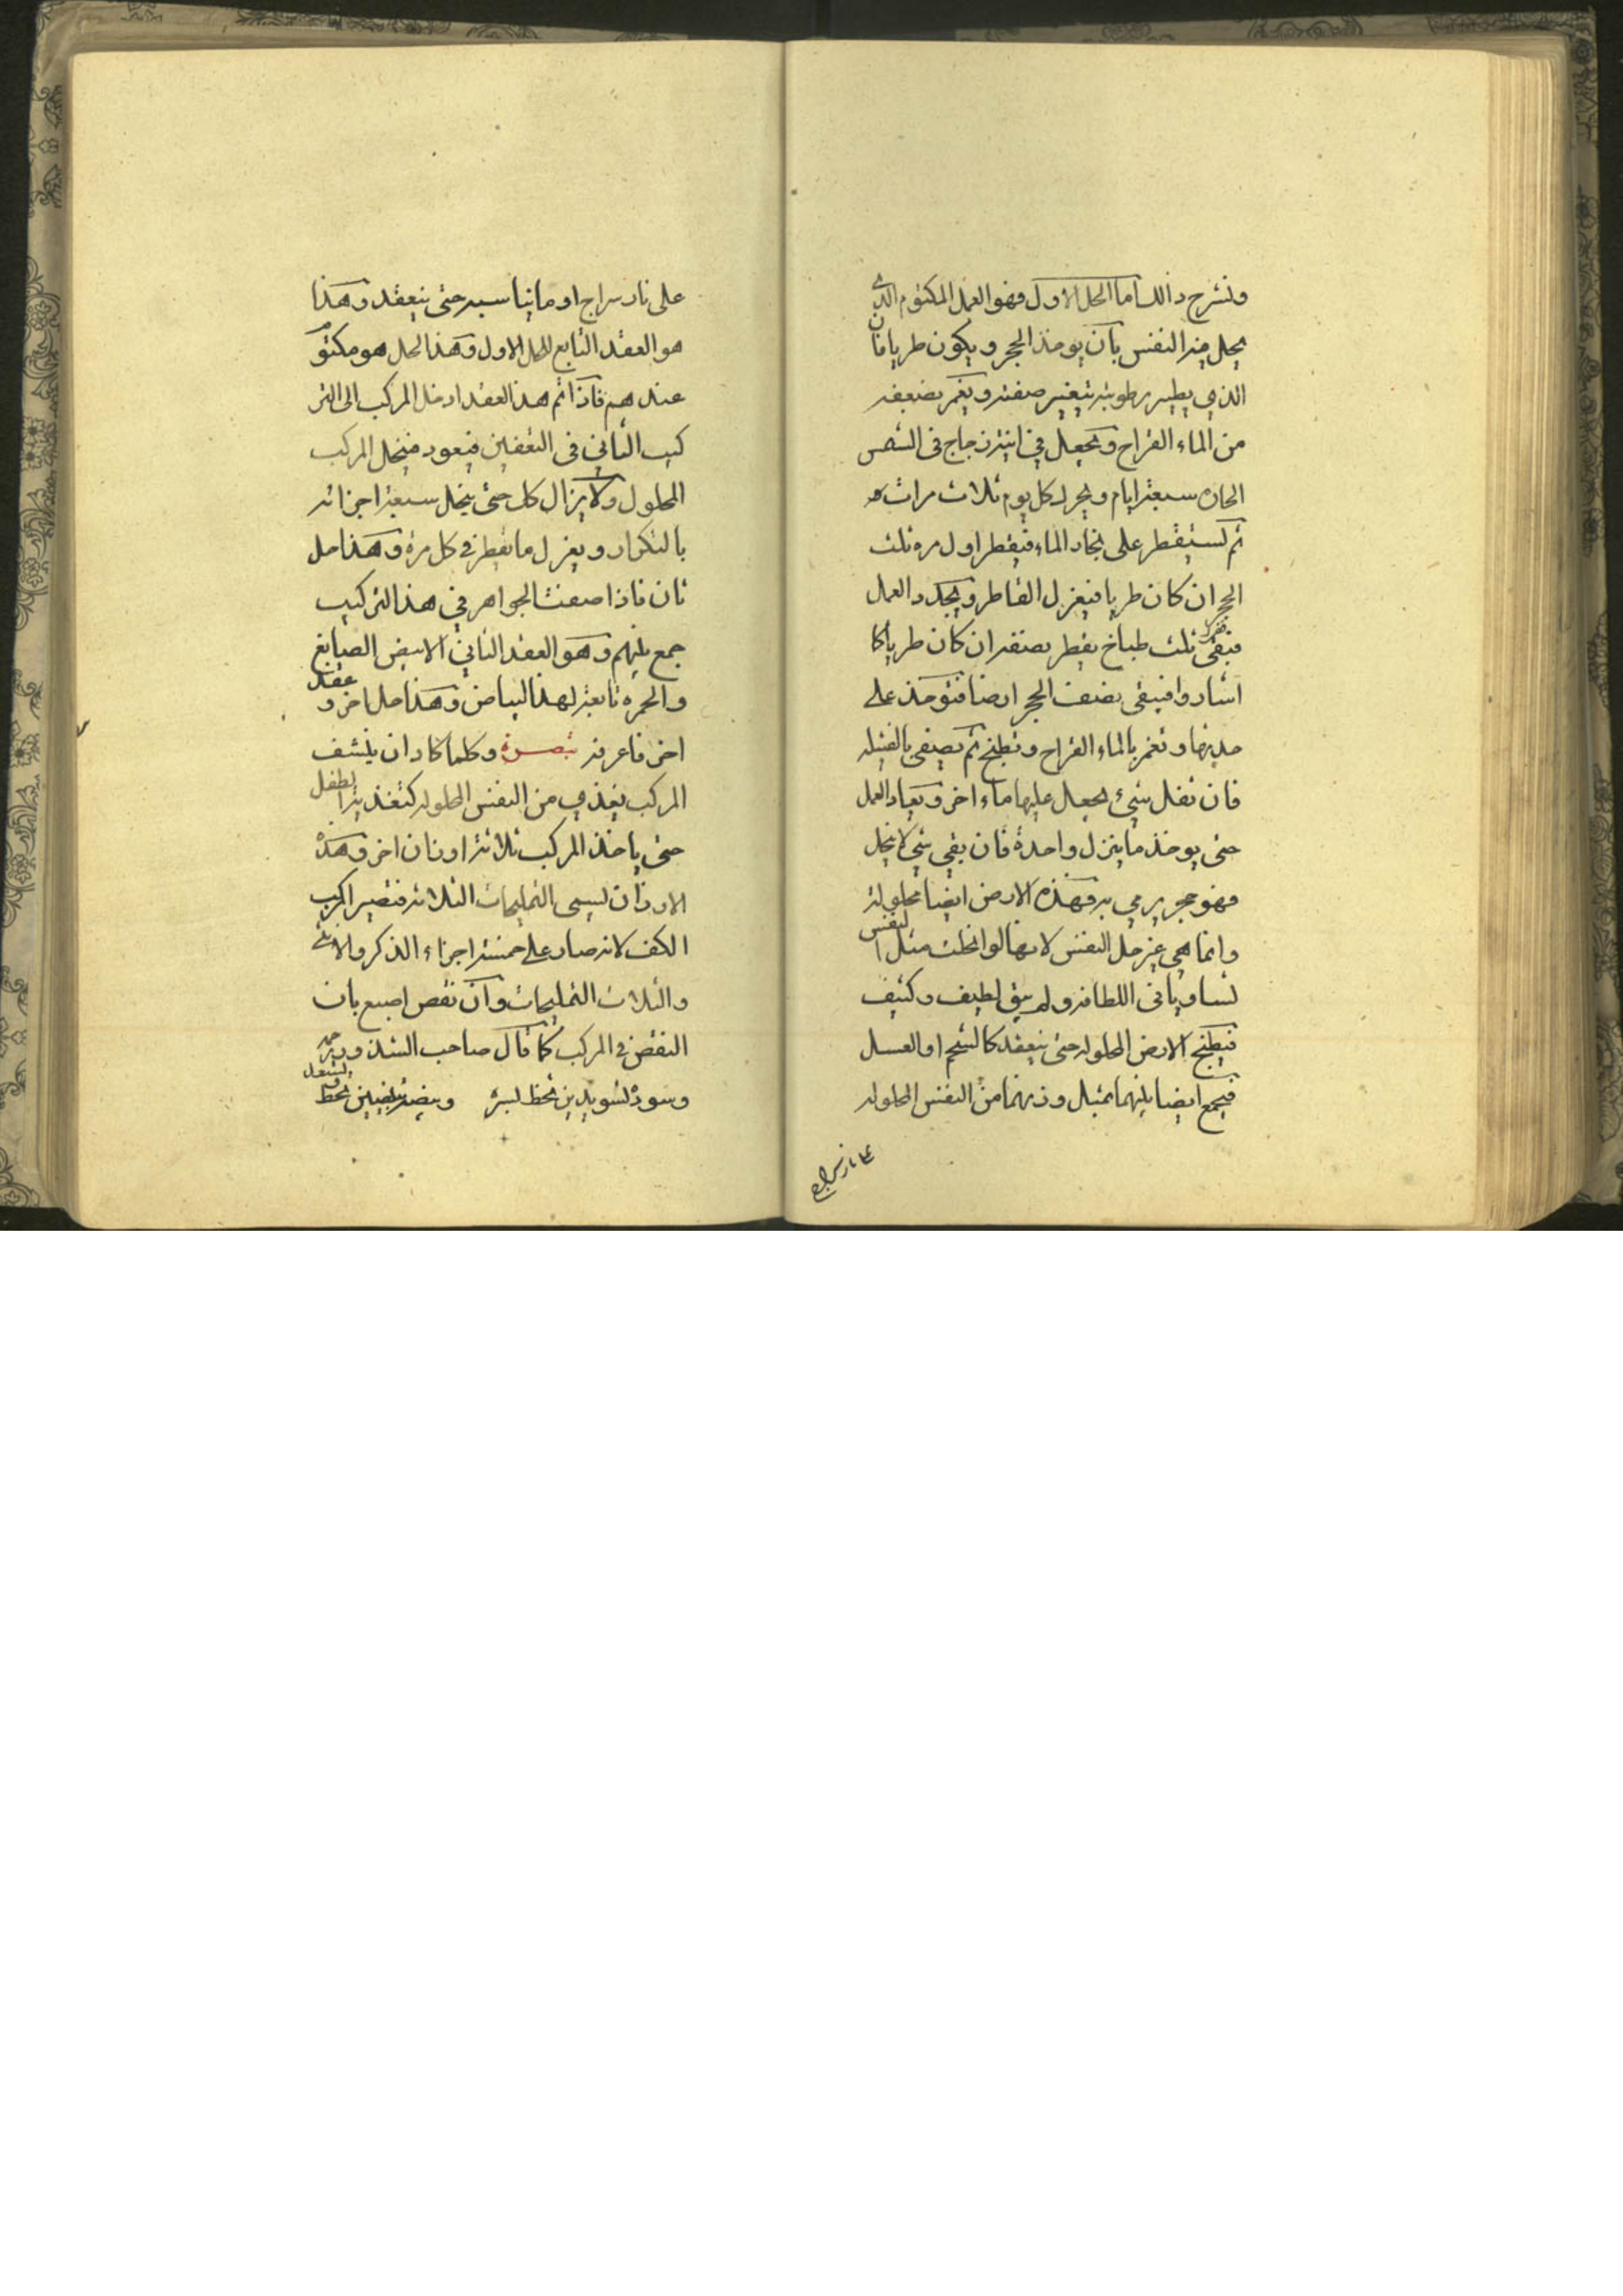 ولنشرح ذالك اما الحل الاول فهو العمل المكتوم الذي
يحل فيه النفس بان يوخذ الحجر ويكون طريا فان
الذي يطير رطوبته تتغير صفته ويغمر بضعفه
من الماء القراح ويجعل في انية زجاج في الشمس
الحاره سبعة ايام ويحرك كل يوم ثلاث مرات
ثم تستقطر على بخار الماء فيقطر اول مره ثلث
الحجر ان كان طريا فيعزل القاطر ويجدد العمل
فبقى ثلث طباخ يقطر نصفه ان كان طريا كما
اشاروا فيبقى نصف الحجر ارضا فتوخذ على
حدتها وتغمر بالماء القراح وتطبخ ثم يصفى بالفتيله
فان ثفل شيء يجعل عليها ماء اخر ويعاد العمل
حتى يوخذ ما ينزل واحدة فان بقي شي لا ينحل
فهو حجر يرمي به وهذه الارض ايضا محلولة
وانما هي غير حل النفس لانها لو انحلت مثل النفس
لتساويا في اللطافه ولم يبق لطيف وكثيف
فيطبخ الارض المحلوله حتى ينعقد كالشحم او العسل
فيجمع ايضا بينهما بمثل وزنهما من النفس المحلوله
على نار سراج
على نار سراج او ما يناسبه حتى ينعقد وهذا
هو العقد التابع للحل الاول وهذا الحل هو مكتوم
عندهم فاذا تم هذا العقد ادخل المركب الى التر
كيب الثاني في التعفين فيعود فينحل المركب
المحلول ولا يزال كل حتى ينحل سبعة اجزائه
بالتكرار ويعزل ما يقطر في كل مرة وهذا حل
ثان فاذا صفت الجواهر في هذا التركيب
جمع بينهم وهو العقد الثاني الابيض الصابغ
والحمره تابعة لهذا البياض وهذا حل اخر وعقد
اخر فاعرفه تبصرة وكلما كاد ان ينشف
المركب يغذي من النفس المحلوله كتغذية الطفل
حتى ياخذ المركب ثلاثة اوزان اخر وهذه
الاوزان تسمى التمليحات الثلاثه فتصير المركب
الكف لانه صار على خمسة اجزاء الذكر والانثى
والثلاث التمليحات وان نقص اصبع بان
النقص في المركب كما قال صاحب الشذور
وسوده تسويدين تحظ بسره وبيضه تبييضين تحظ